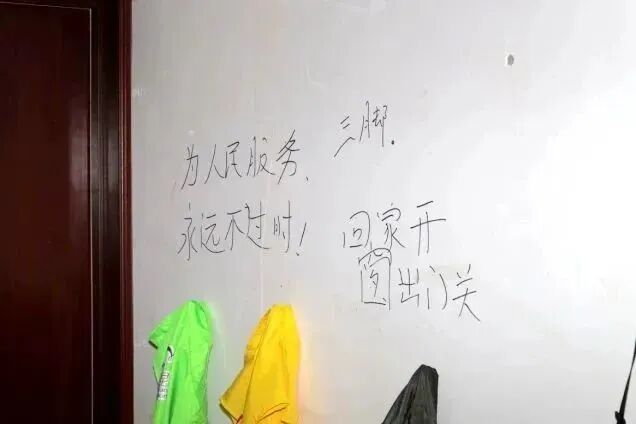 为人民服务、
永远不过时!
三脚.
回家开
窗出门关